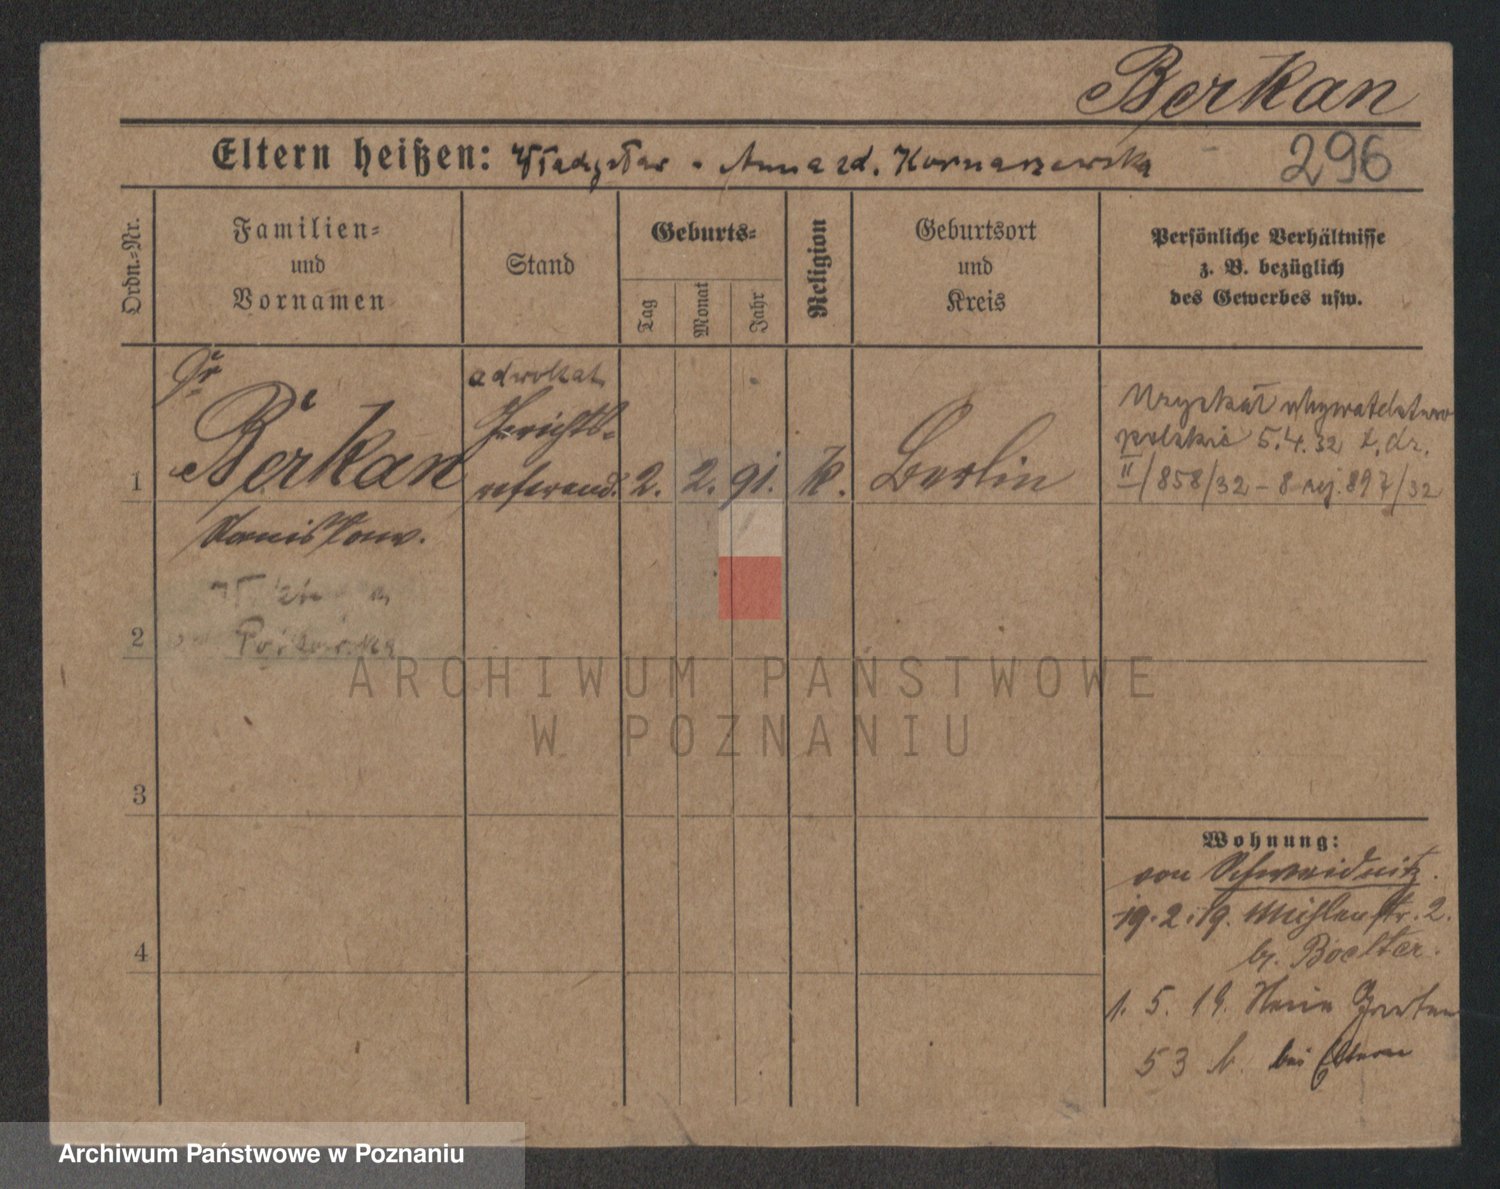 Berkan
Eltern heißen: Władysław - Anna zd. Kornaszewska
296
Ordn.-Nr.
Familien-
und
Vornamen
Stand
Geburts-
Tag
Monat
Jahr
Religion
Geburtsort
und
Kreis
Persönliche Verhältnisse
z. B. bezüglich
des Gewerbes usw.
Dr
adwokat
Gerichts-
1 Berkan referend. 2. 2. 91. k. Berlin
Uzyskał obywatelstwo
polskie 5.4.32 L.dz.
II/858/32 - 8 rej. 897/32
Stanisław.
2
ARCHIWUM PAŃSTWOWE
W POZNANIU
3
Wohnung:
von Schweidnitz.
19.2.19. Mühlenstr. 2.
b. Boelter.
4
1. 5. 19. Garten
53 b. bei Eltern
Archiwum Państwowe w Poznaniu